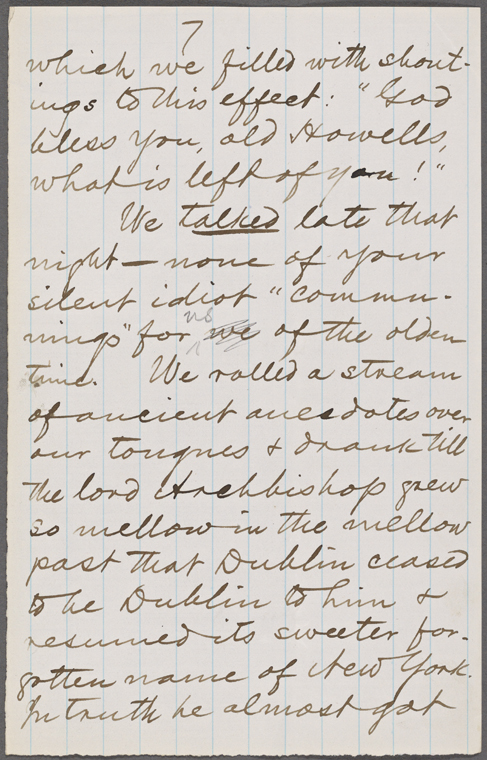 7
which we filled with shout-
ings to this effect: "God
bless you, old Howells,
what is left of you!"
We talked late that
night—none of your
silent idiot "commu-
nings" for us of the olden
time. We rolled a stream
of ancient anecdotes over
our tongues & drank till
the lord Archbishop grew
so mellow in the mellow
past that Dublin ceased
to be Dublin to him &
resumed its sweeter for-
gotten name of New York.
In truth he almost got